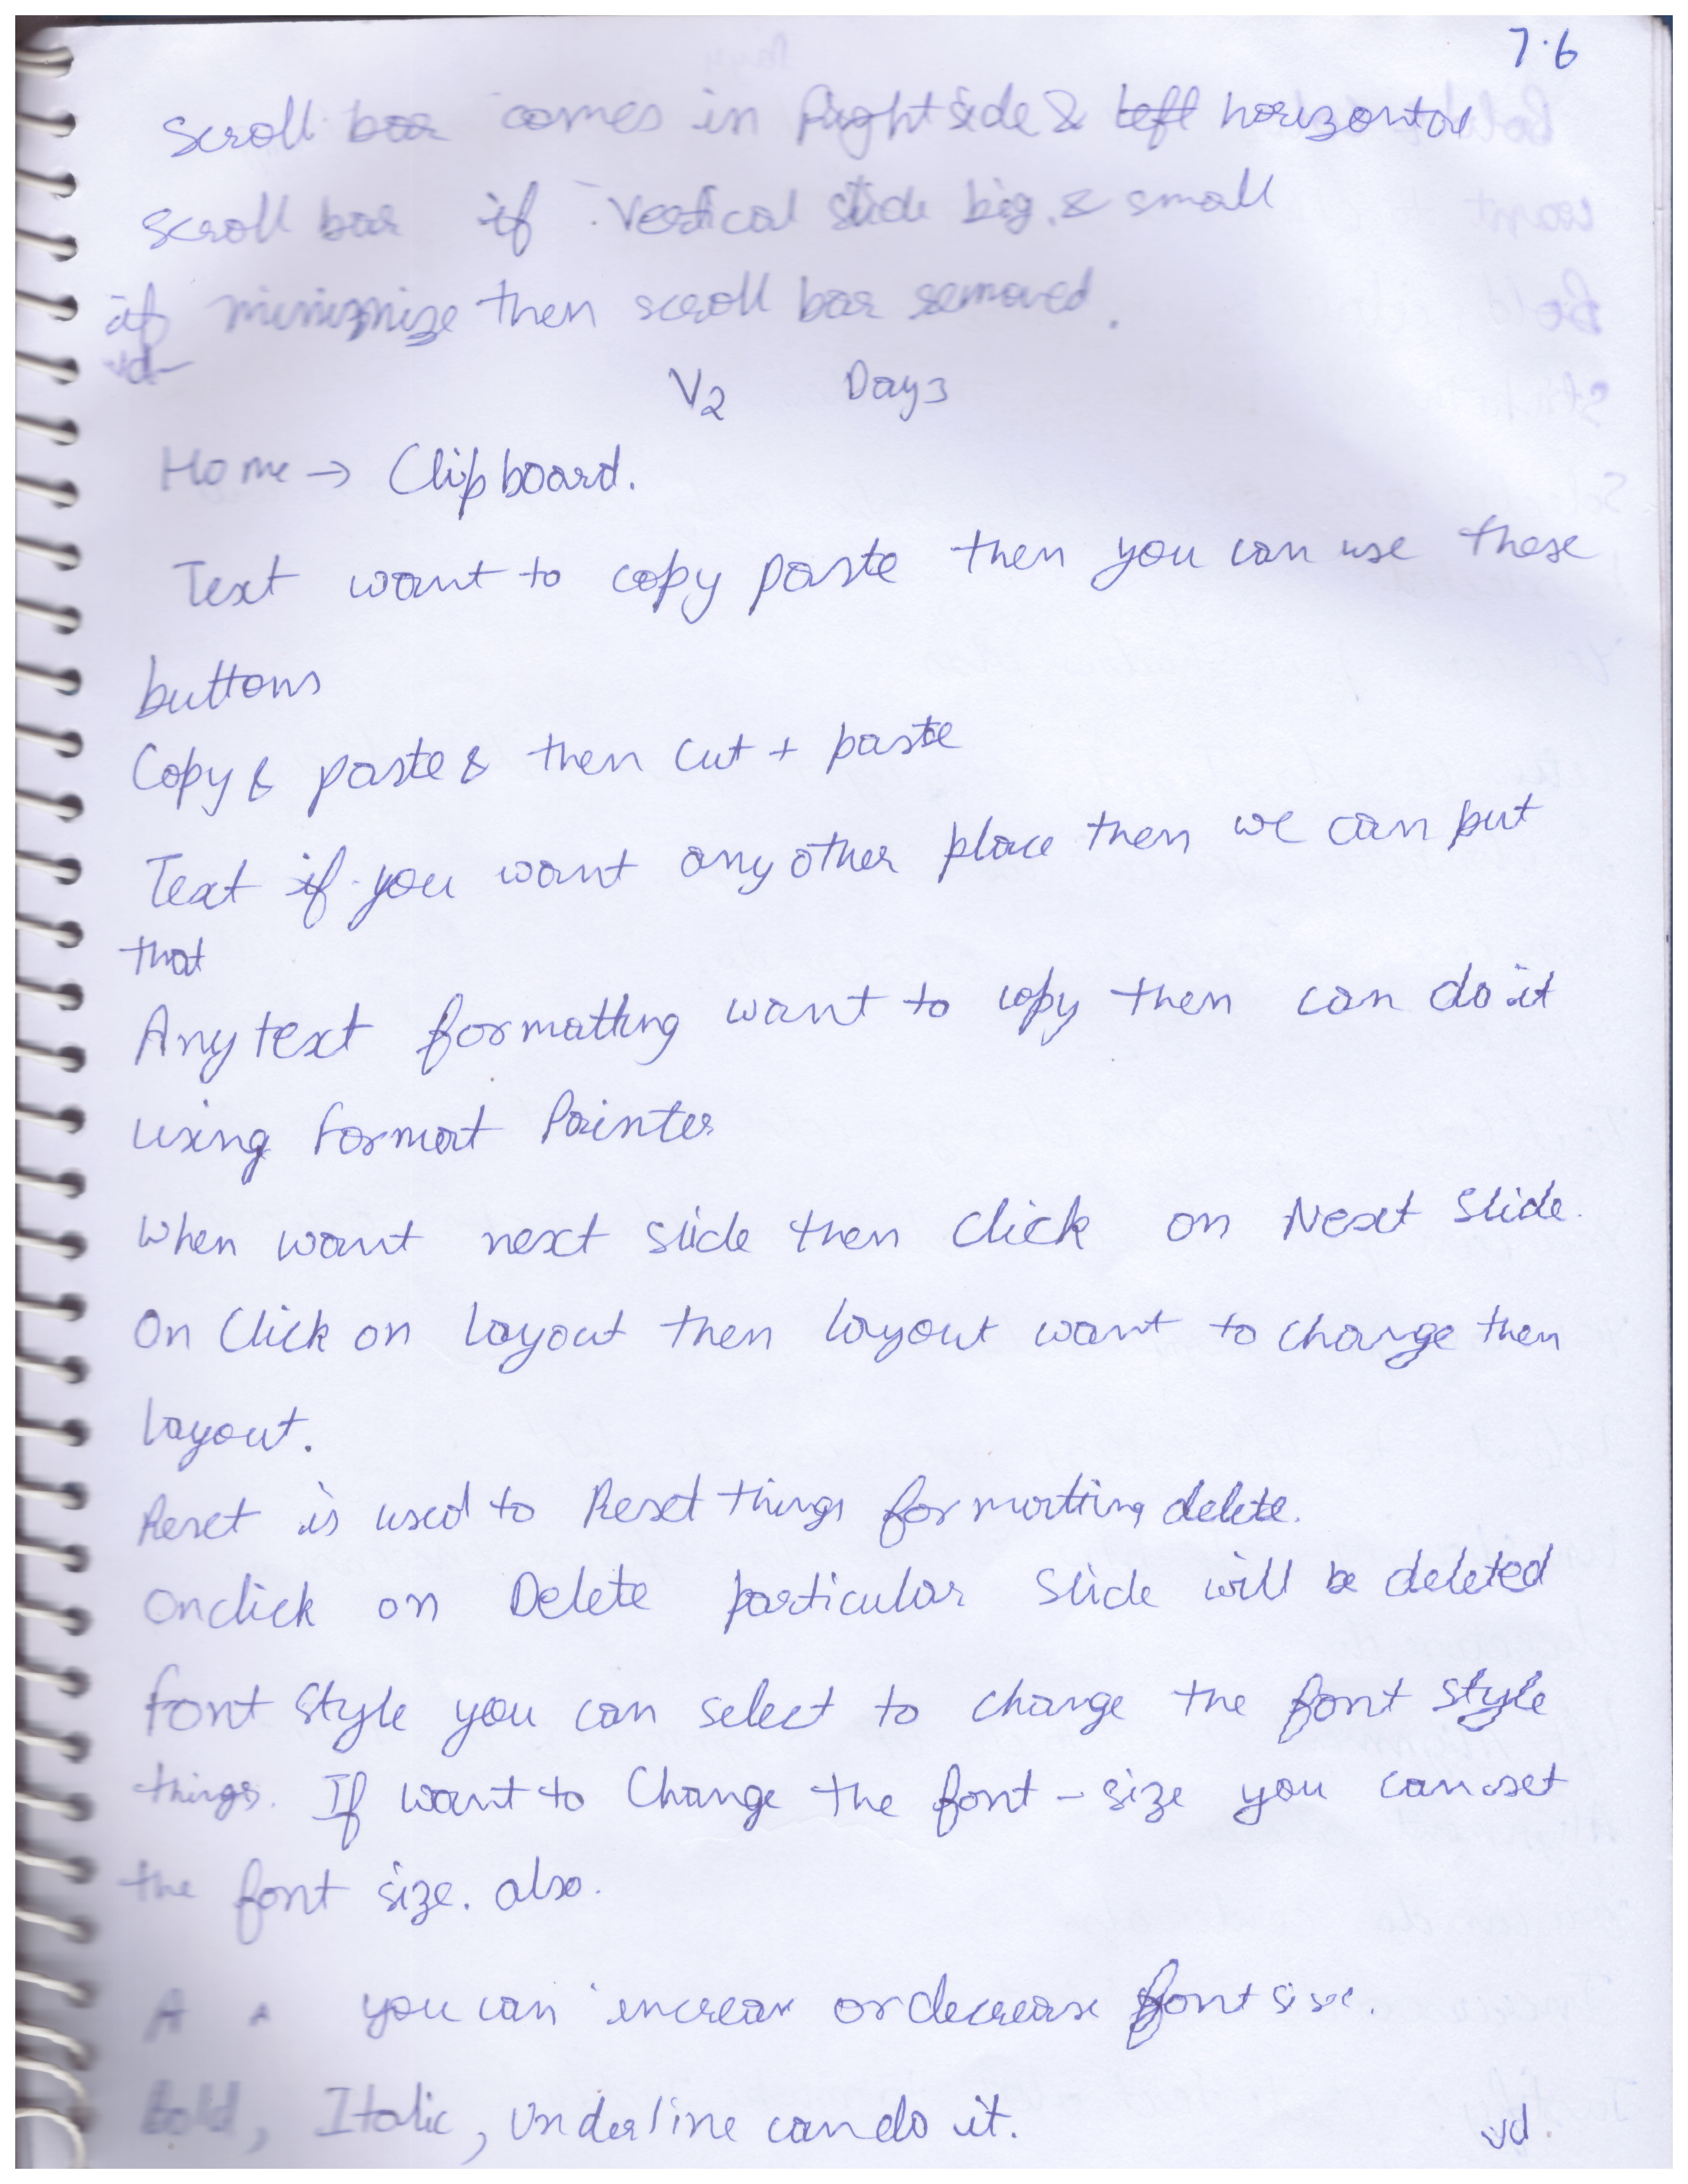 7.6
Scroll bar comes in Right side & left horizontal
scroll bar if vertical slide big & small
if minimize then scroll bar removed.
vd
V2 Day3
Home → Clipboard.
Text want to copy paste then you can use these
buttons
Copy & paste & then cut + paste
Text if you want any other place then we can put
that
Any text formatting want to copy then can do it
using Format Painter
When want next slide then click on Next Slide.
On Click on layout then layout want to change then
layout.
Reset is used to Reset things formatting delete.
Onclick on Delete particular slide will be deleted
font style you can select to change the font style
things. If want to Change the font-size you can set
the font size. also.
A A you can increase or decrease font size.
Bold, Italic, Underline can do it.
vd.